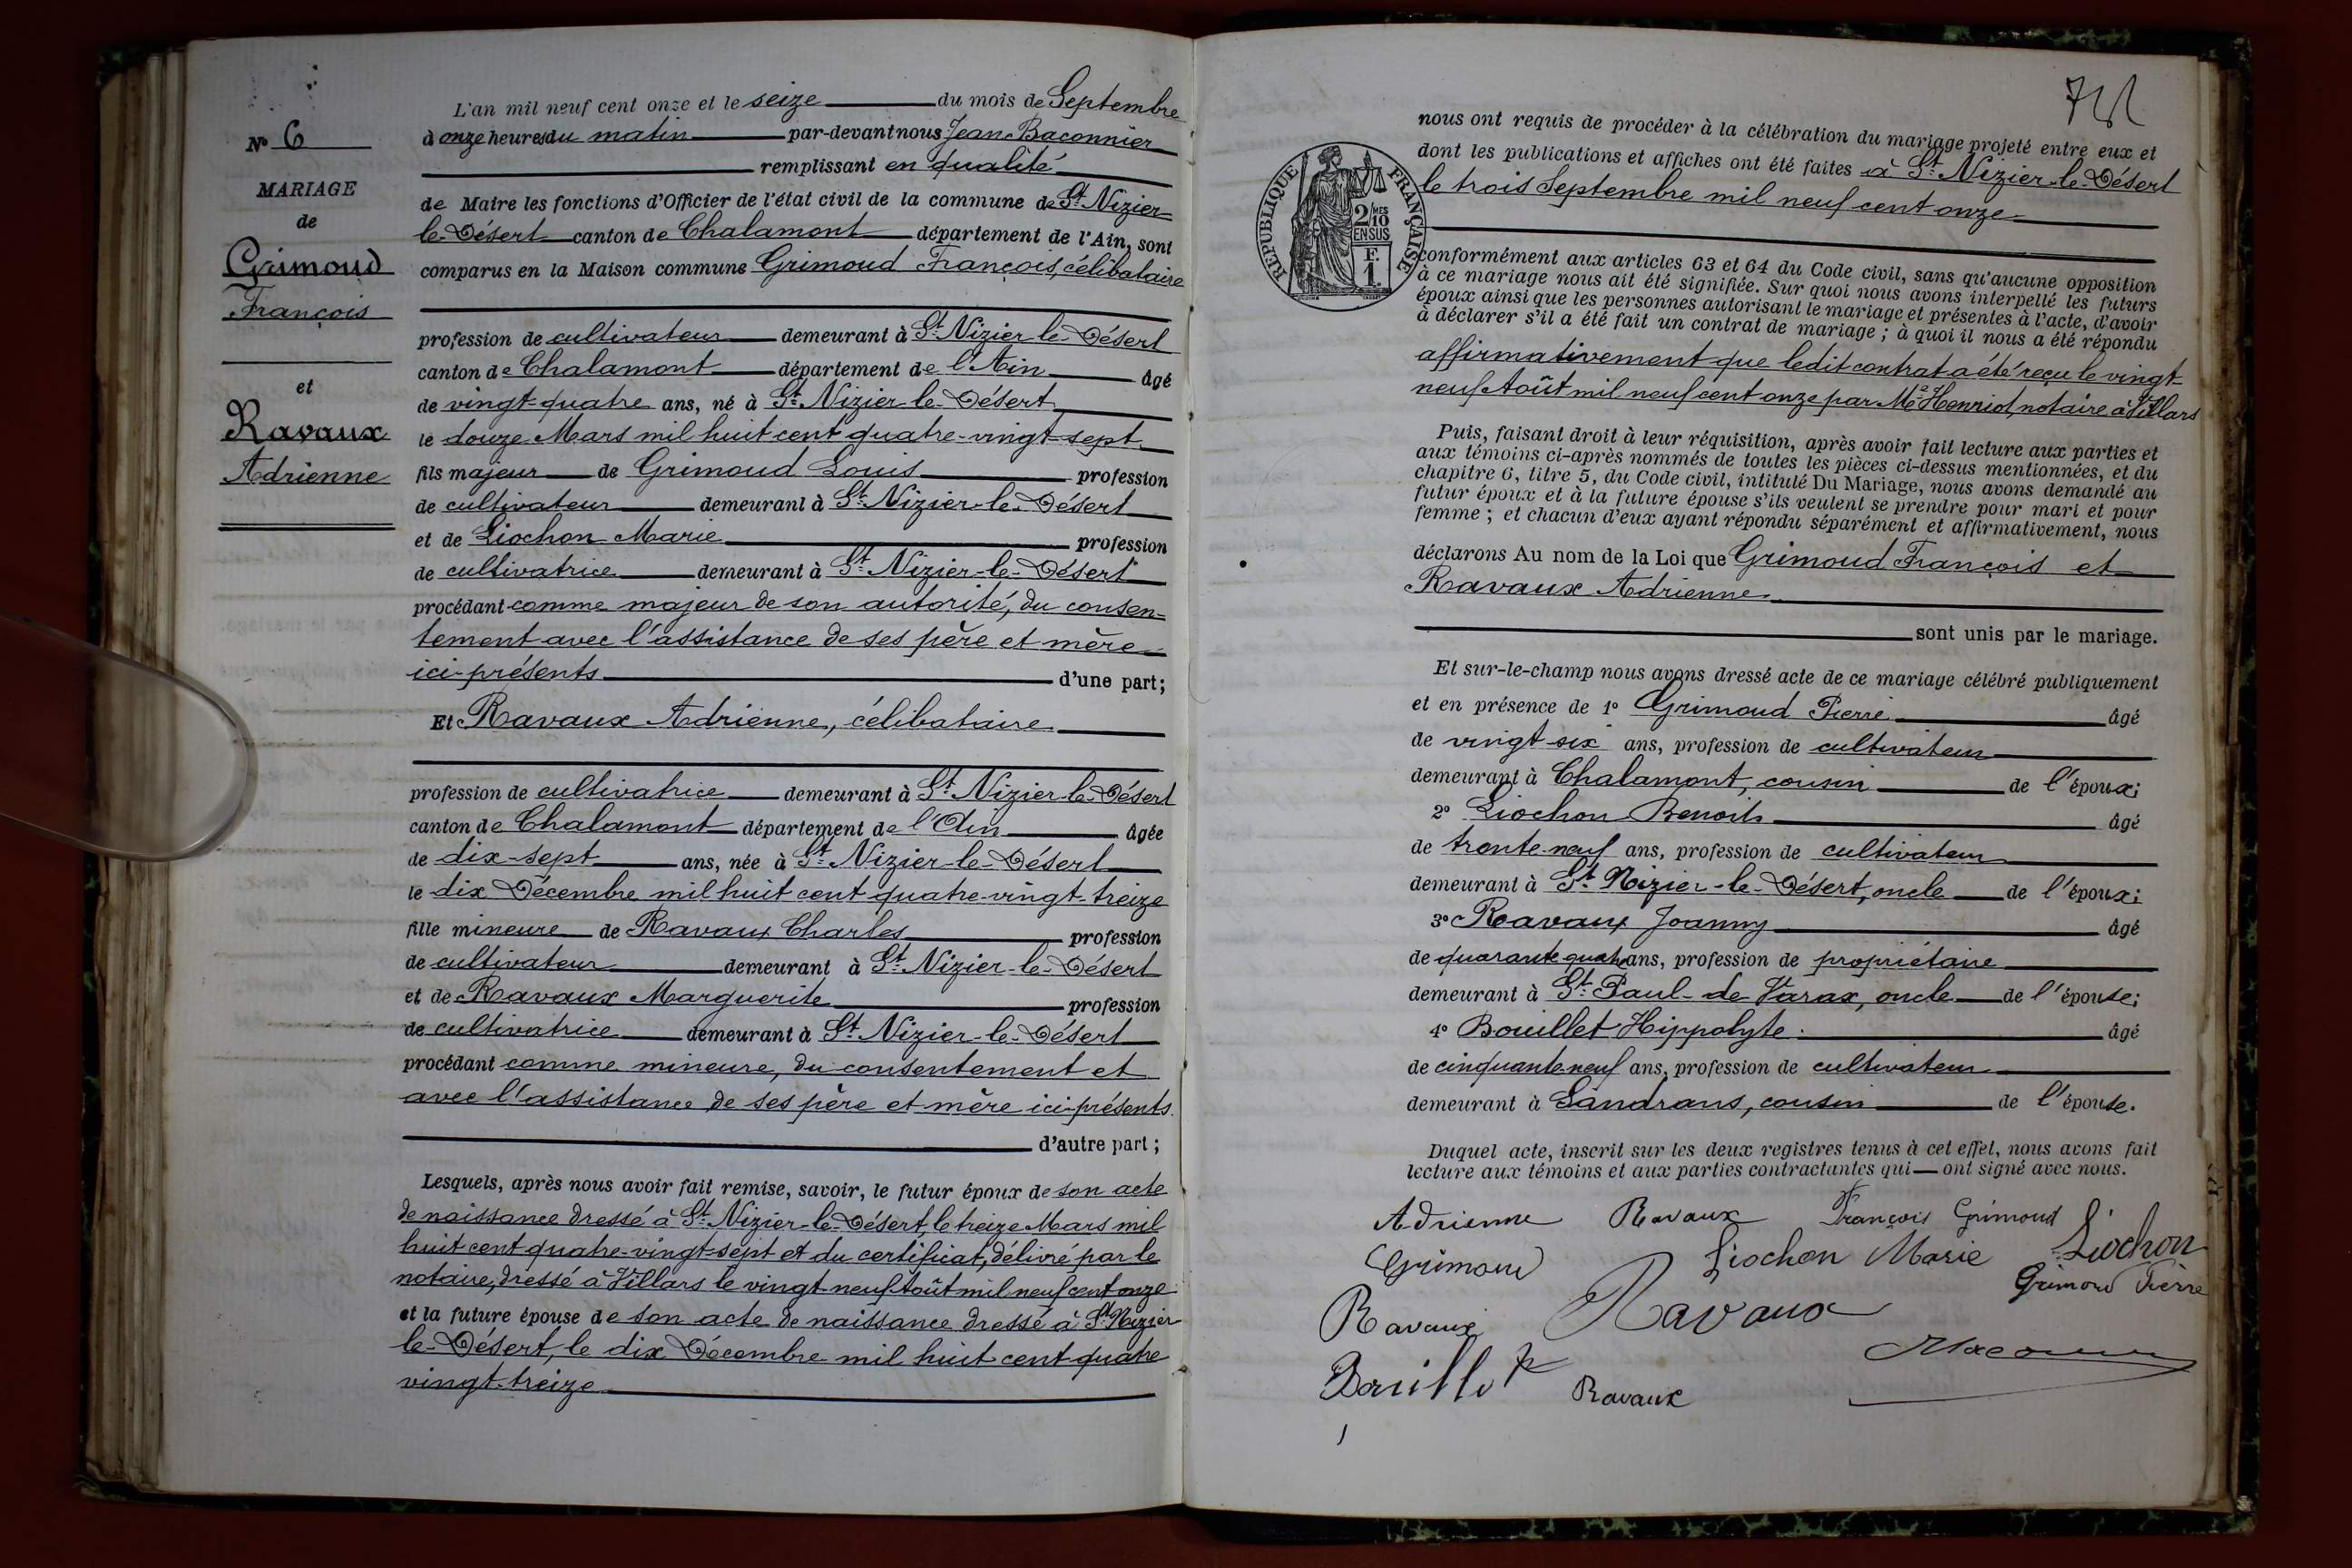 N° 6
MARIAGE
de
Grimoud
François
et
Ravaux
Adrienne
L'an mil neuf cent onze et le seize du mois de Septembre
à onze heures du matin par-devant nous Jean Baconnier
remplissant en qualité
de Maire les fonctions d'Officier de l'état civil de la commune de St Nizier-
le-Désert canton de Chalamont département de l'Ain, sont
comparus en la Maison commune Grimoud François, célibataire
profession de cultivateur demeurant à St Nizier-le-Désert
canton de Chalamont département de l'Ain âgé
de vingt-quatre ans, né à St Nizier-le-Désert
le douze Mars mil huit cent quatre-vingt-sept
fils majeur de Grimoud Louis profession
de cultivateur demeurant à St Nizier-le-Désert
et de Liochon Marie profession
de cultivatrice demeurant à St Nizier-le-Désert
procédant comme majeur de son autorité, du consen-
tement avec l'assistance de ses père et mère
ici-présents d'une part;
Et Ravaux Adrienne, célibataire
profession de cultivatrice demeurant à St Nizier-le-Désert
canton de Chalamont département de l'Ain âgée
de dix-sept ans, née à St Nizier-le-Désert
le dix Décembre mil huit cent quatre-vingt-treize
fille mineure de Ravaux Charles profession
de cultivateur demeurant à St Nizier-le-Désert
et de Ravaux Marguerite profession
de cultivatrice demeurant à St Nizier-le-Désert
procédant comme mineure, du consentement et
avec l'assistance de ses père et mère ici-présents
d'autre part;
Lesquels, après nous avoir fait remise, savoir, le futur époux de son acte
de naissance dressé à St Nizier-le-Désert, le treize Mars mil
huit cent quatre-vingt-sept et du certificat, délivré par le
notaire, dressé à Villars le vingt-neuf Août mil neuf cent onze
et la future épouse de son acte de naissance dressé à St Nizier
le-Désert, le dix Décembre mil huit cent quatre
vingt-treize
nous ont requis de procéder à la célébration du mariage projeté entre eux et
dont les publications et affiches ont été faites à St Nizier-le-Désert
le trois Septembre mil neuf cent onze
RÉPUBLIQUE FRANÇAISE
2/MES
10
EN SUS
F.
1.
conformément aux articles 63 et 64 du Code civil, sans qu'aucune opposition
à ce mariage nous ait été signifiée. Sur quoi nous avons interpellé les futurs
époux ainsi que les personnes autorisant le mariage et présentes à l'acte, d'avoir
à déclarer s'il a été fait un contrat de mariage; à quoi il nous a été répondu
affirmativement que ledit contrat a été reçu le vingt-
neuf Août mil neuf cent onze par Me Henriot, notaire à Villars
Puis, faisant droit à leur réquisition, après avoir fait lecture aux parties et
aux témoins ci-après nommés de toutes les pièces ci-dessus mentionnées, et du
chapitre 6, titre 5, du Code civil, intitulé Du Mariage, nous avons demandé au
futur époux et à la future épouse s'ils veulent se prendre pour mari et pour
femme; et chacun d'eux ayant répondu séparément et affirmativement, nous
déclarons Au nom de la Loi que Grimoud François et
Ravaux Adrienne
sont unis par le mariage.
Et sur-le-champ nous avons dressé acte de ce mariage célébré publiquement
et en présence de 1° Grimoud Pierre âgé
de vingt-six ans, profession de cultivateur
demeurant à Chalamont, cousin de l'époux;
2° Liochon Benoit âgé
de trente-neuf ans, profession de cultivateur
demeurant à St Nizier-le-Désert, oncle de l'époux;
3° Ravaux Joanny âgé
de quarante quatre ans, profession de propriétaire
demeurant à St Paul-de-Varax, oncle de l'épouse;
4° Bouillet Hippolyte âgé
de cinquante-neuf ans, profession de cultivateur
demeurant à Sandrans, cousin de l'épouse.
Duquel acte, inscrit sur les deux registres tenus à cet effet, nous avons fait
lecture aux témoins et aux parties contractantes qui ont signé avec nous.
Adrienne Ravaux François Grimoud
Grimoud Liochon Marie Liochon
Grimoud Pierre
Ravaux Ravaux
Ravaux